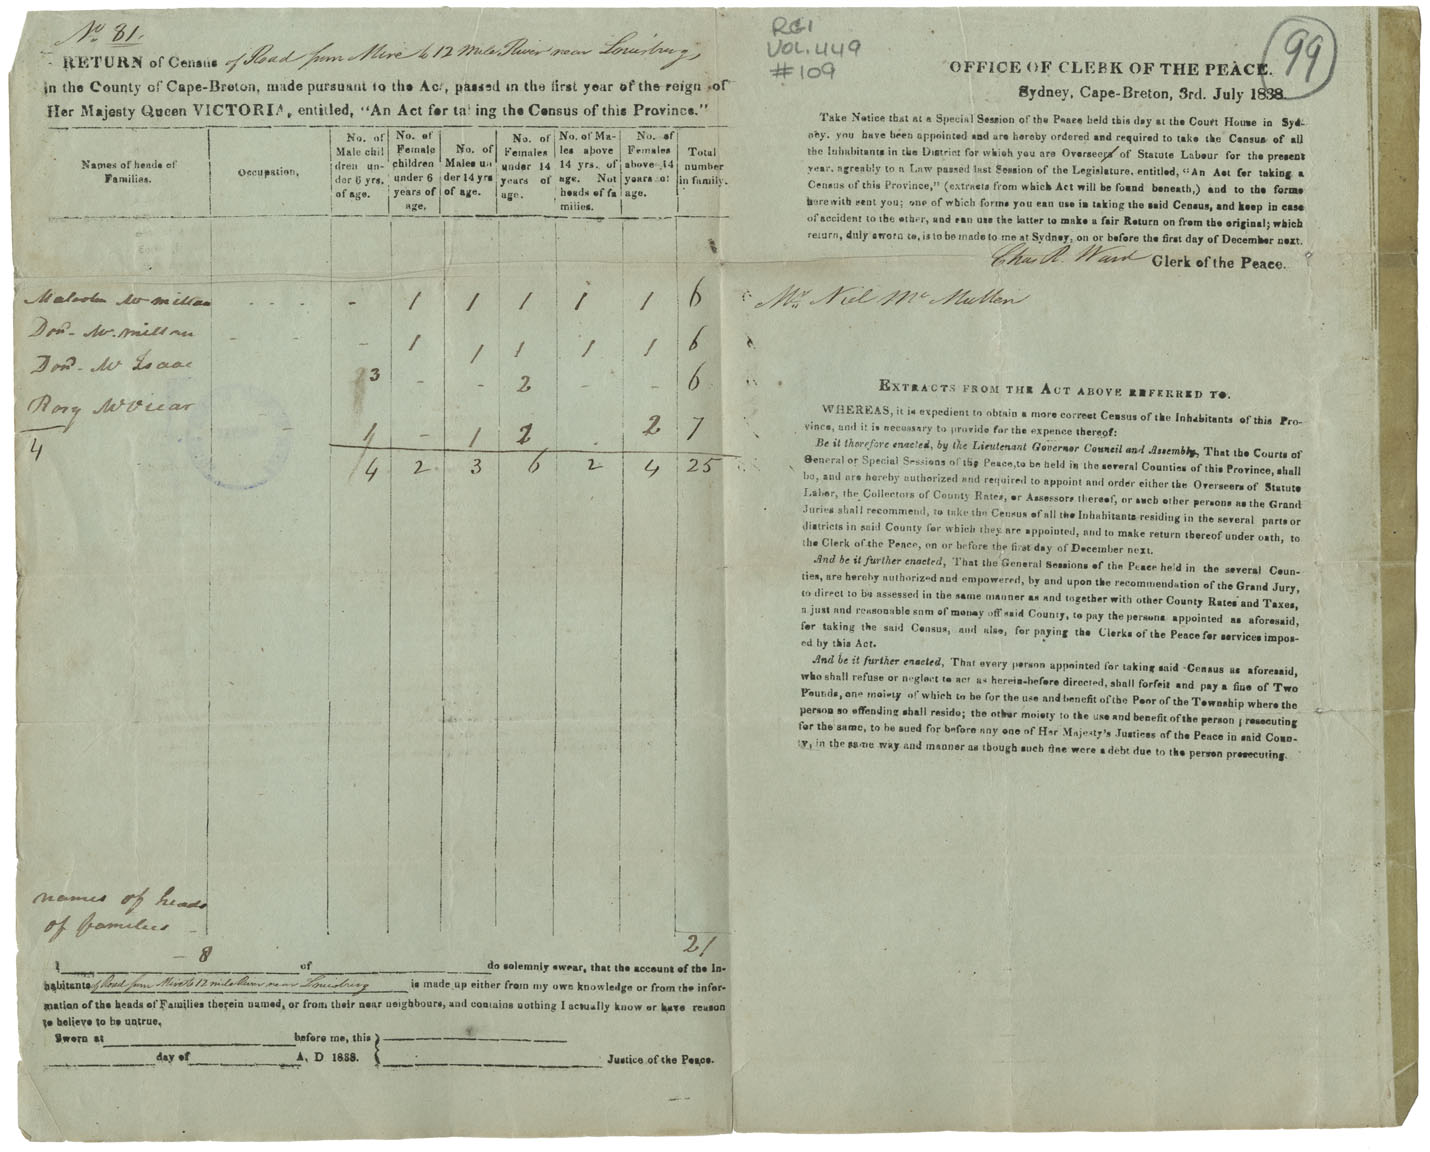 No 81.
RETURN of Census of Road from Mire to 12 Mile River near Louisburg,
in the County of Cape-Breton, made pursuant to the Act, passed in the first year of the reign of
Her Majesty Queen VICTORIA, entitled, "An Act for taking the Census of this Province."
Names of heads of Families. | Occupation, | No. of Male chil dren un- der 6 yrs. of age. | No. of Female children under 6 years of age. | No. of Males un der 14 yrs of age. | No. of Females under 14 years of age. | No. of Ma- les above 14 yrs. of age. Not heads of fa milies. | No. of Females above 14 years of age. | Total number in family.
Malcolm McMillan - - - - - 1 1 1 1 1 6
Dond. McMillan - - - 1 1 1 1 1 6
Dond. McIsaac 3 - - 2 - - 6
Rory McVicar 1 - 1 2 . 2 7
4 4 2 3 6 2 4 25
names of heads
of families -
- 8 21
I of do solemnly swear, that the account of the In-
habitants of Road from Mire to 12 mile River near Louisburg is made up either from my own knowledge or from the infor-
mation of the heads of Families therein named, or from their near neighbours, and contains nothing I actually know or have reason
to believe to be untrue.
Sworn at before me, this }
day of A, D 1838. { Justice of the Peace.
RG1
VOL. 449
#109
99
OFFICE OF CLERK OF THE PEACE.
Sydney, Cape-Breton, 3rd. July 1838.
Take Notice that at a Special Session of the Peace held this day at the Court House in Syd-
ney, you have been appointed and are hereby ordered and required to take the Census of all
the Inhabitants in the District for which you are Overseers of Statute Labour for the present
year, agreably to a Law passed last Session of the Legislature, entitled, "An Act for taking a
Census of this Province," (extracts from which Act will be found beneath,) and to the forms
herewith sent you; one of which forms you can use in taking the said Census, and keep in case
of accident to the other, and can use the latter to make a fair Return on from the original; which
return, duly sworn to, is to be made to me at Sydney, on or before the first day of December next.
Chas R. Ward Clerk of the Peace.
Mr. Niel McMullen
EXTRACTS FROM THE ACT ABOVE REFERRED TO.
WHEREAS, it is expedient to obtain a more correct Census of the Inhabitants of this Pro-
vince, and it is necessary to provide for the expence thereof:
Be it therefore enacted, by the Lieutenant Governor Council and Assembly, That the Courts of
General or Special Sessions of the Peace, to be held in the several Counties of this Province, shall
be, and are hereby authorized and required to appoint and order either the Overseers of Statute
Labor, the Collectors of County Rates, or Assessors thereof, or such other persons as the Grand
Juries shall recommend, to take the Census of all the Inhabitants residing in the several parts or
districts in said County for which they are appointed, and to make return thereof under oath, to
the Clerk of the Peace, on or before the first day of December next.
And be it further enacted, That the General Sessions of the Peace held in the several Coun-
ties, are hereby authorized and empowered, by and upon the recommendation of the Grand Jury,
to direct to be assessed in the same manner as and together with other County Rates and Taxes,
a just and reasonable sum of money off said County, to pay the persons appointed as aforesaid,
for taking the said Census, and also, for paying the Clerks of the Peace for services impos-
ed by this Act.
And be it further enacted, That every person appointed for taking said Census as aforesaid,
who shall refuse or neglect to act as herein-before directed, shall forfeit and pay a fine of Two
Pounds, one moiety of which to be for the use and benefit of the Poor of the Township where the
person so offending shall reside; the other moiety to the use and benefit of the person prosecuting
for the same, to be sued for before any one of Her Majesty's Justices of the Peace in said Coun-
ty, in the same way and manner as though such fine were a debt due to the person prosecuting.